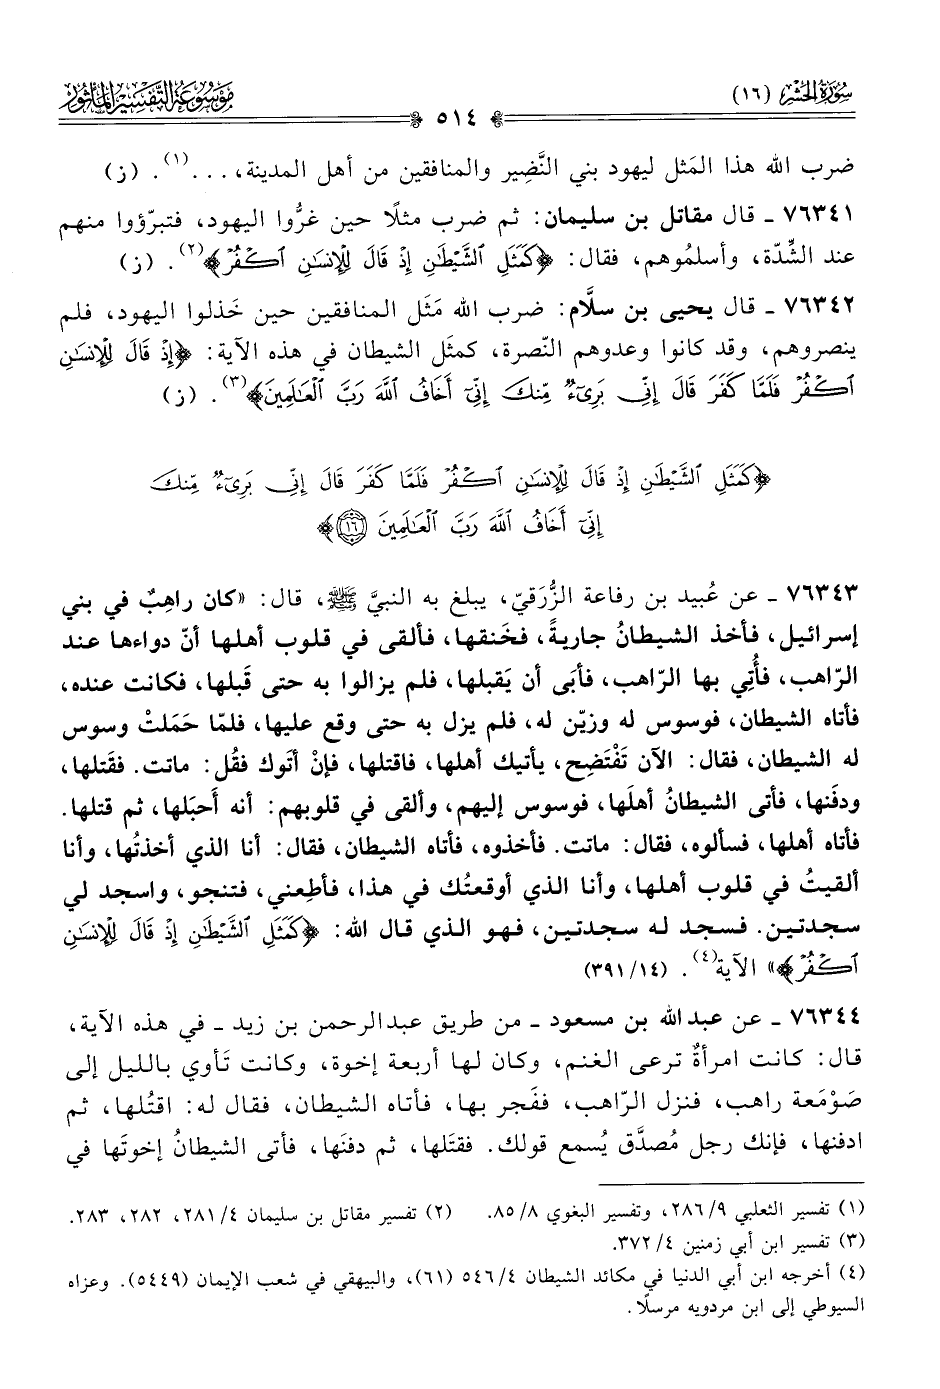 سُورَةُ الحَشْرِ (١٦)
٥١٤
مَوْسُوعَة التَّفْسِيرِ المَأْثُور
ضرب الله هذا المَثل ليهود بني النَّضِير والمنافقين من أهل المدينة، ...(١). (ز)
٧٦٣٤١ ـ قال مقاتل بن سليمان: ثم ضرب مثلًا حين غرُّوا اليهود، فتبرّؤوا منهم
عند الشِّدّة، وأسلمُوهم، فقال: ﴿كَمَثَلِ ٱلشَّيْطَٰنِ إِذْ قَالَ لِلْإِنسَٰنِ ٱكْفُرْ﴾(٢). (ز)
٧٦٣٤٢ ـ قال يحيى بن سلَّام: ضرب الله مَثَل المنافقين حين خَذلوا اليهود، فلم
ينصروهم، وقد كانوا وعدوهم النّصرة، كمثَل الشيطان في هذه الآية: ﴿إِذْ قَالَ لِلْإِنسَٰنِ
ٱكْفُرْ فَلَمَّا كَفَرَ قَالَ إِنِّى بَرِىٓءٌ مِّنكَ إِنِّىٓ أَخَافُ ٱللَّهَ رَبَّ ٱلْعَٰلَمِينَ﴾(٣). (ز)
﴿كَمَثَلِ ٱلشَّيْطَٰنِ إِذْ قَالَ لِلْإِنسَٰنِ ٱكْفُرْ فَلَمَّا كَفَرَ قَالَ إِنِّى بَرِىٓءٌ مِّنكَ
إِنِّىٓ أَخَافُ ٱللَّهَ رَبَّ ٱلْعَٰلَمِينَ ١٦﴾
٧٦٣٤٣ ـ عن عُبيد بن رفاعة الزُّرَقيّ، يبلغ به النبيَّ ﷺ، قال: «كان راهِبٌ في بني
إسرائيل، فأخذ الشيطانُ جاريةً، فخَنقها، فألقى في قلوب أهلها أنّ دواءها عند
الرّاهب، فأُتِي بها الرّاهب، فأبَى أن يَقبلها، فلم يزالوا به حتى قَبِلها، فكانت عنده،
فأتاه الشيطان، فوسوس له وزيّن له، فلم يزل به حتى وقع عليها، فلمّا حَمَلتْ وسوس
له الشيطان، فقال: الآن تَفْتَضِح، يأتيك أهلها، فاقتلها، فإنْ أتَوك فقُل: ماتت. فقَتلها،
ودفَنها، فأتى الشيطانُ أهلَها، فوسوس إليهم، وألقى في قلوبهم: أنه أَحبَلها، ثم قتلها.
فأتاه أهلها، فسألوه، فقال: ماتت. فأخذوه، فأتاه الشيطان، فقال: أنا الذي أخذتُها، وأنا
ألقيتُ في قلوب أهلها، وأنا الذي أوقعتُك في هذا، فأطِعني، فتنجو، واسجد لي
سجدتين. فسجد له سجدتين، فهو الذي قال الله: ﴿كَمَثَلِ ٱلشَّيْطَٰنِ إِذْ قَالَ لِلْإِنسَٰنِ
ٱكْفُرْ﴾» الآية(٤). (١٤/ ٣٩١)
٧٦٣٤٤ ـ عن عبد الله بن مسعود ـ من طريق عبدالرحمن بن زيد ـ في هذه الآية،
قال: كانت امرأةٌ ترعى الغنم، وكان لها أربعة إخوة، وكانت تَأوي بالليل إلى
صَوْمَعة راهب، فنزل الرّاهب، ففَجر بها، فأتاه الشيطان، فقال له: اقتُلها، ثم
ادفنها، فإنك رجل مُصدَّق يُسمع قولك. فقتَلها، ثم دفنَها، فأتى الشيطانُ إخوتَها في
(١) تفسير الثعلبي ٩/ ٢٨٦، وتفسير البغوي ٨/ ٨٥. (٢) تفسير مقاتل بن سليمان ٤/ ٢٨١، ٢٨٢، ٢٨٣.
(٣) تفسير ابن أبي زمنين ٤/ ٣٧٢.
(٤) أخرجه ابن أبي الدنيا في مكائد الشيطان ٤/ ٥٤٦ (٦١)، والبيهقي في شعب الإيمان (٥٤٤٩). وعزاه
السيوطي إلى ابن مردويه مرسلًا.